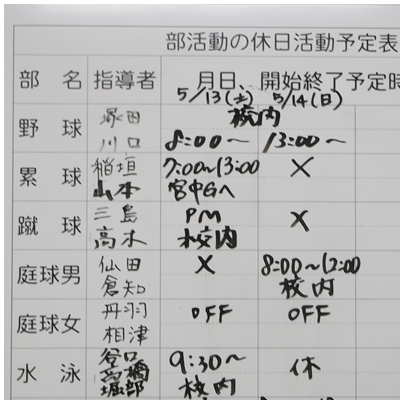 部活動の休日活動予定表
部 名 指導者 月日、開始終了予定時
5/13(土) 5/14(日)
野 球 塚田 川口 校内 8:00〜 13:00〜
累 球 稲垣 山本 7:00〜13:00 宮中Gへ ×
蹴 球 三島 高木 PM 校内 ×
庭球男 仙田 倉知 × 8:00〜12:00 校内
庭球女 丹羽 相津 OFF OFF
水 泳 谷口 高橋 堀部 9:30〜 校内 休